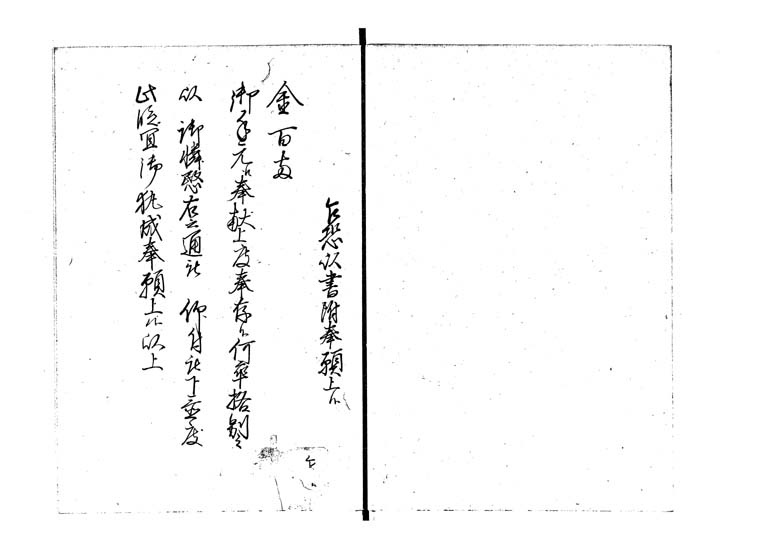 乍恐以書附奉願上候
金百両
御手元江奉献上度奉存候何卒格別之
以 御憐愍右之通被 仰付被下置度
此段宜御執成奉願上候以上